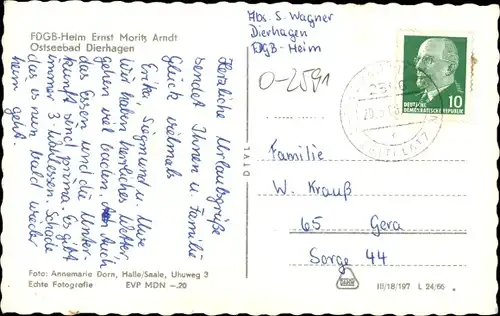 FDGB-Heim Ernst Moritz Arndt
Ostseebad Dierhagen
Herzliche Urlaubsgrüße
sendet Ihnen u. Familie
Glück vielmals
Erika, Siegmund u. Uwe
Wir haben herrliches Wetter,
gehen viel baden. Auch
das Essen und die Unter-
kunft sind prima. Es gibt
immer 3 Wahlessen. Schade
das es nun bald wieder
heim geht.
Foto: Annemarie Dorn, Halle/Saale, Uhuweg 3
Echte Fotografie EVP MDN —.20
Abs. S. Wagner
Dierhagen
FDGB-Heim
O-2591
DEUTSCHE
DEMOKRATISCHE REPUBLIK
10
Familie
W. Krauß
65 Gera
Sorge 44
III/18/197 L 24/66